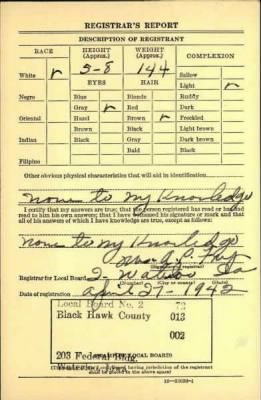 REGISTRAR'S REPORT
DESCRIPTION OF REGISTRANT
RACE HEIGHT (Approx.) WEIGHT (Approx.) COMPLEXION
5-8 144 Sallow
White ✓ EYES HAIR Light ✓
Negro Blue Blonde Ruddy
Gray ✓ Red Dark
Oriental Hazel Brown ✓ Freckled
Brown Black Light brown
Indian Black Gray Dark brown
Bald Black
Filipino
Other obvious physical characteristics that will aid in identification
None to my Knowledge
I certify that my answers are true; that the person registered has read or has had
read to him his own answers; that I have witnessed his signature or mark and that
all of his answers of which I have knowledge are true, except as follows:
None to my Knowledge
Registrar for Local Board 2 Ia
Date of registration April 27-1942
Local Board No. 2 72
Black Hawk County 013
002
203 Federal Bldg.
LOCAL BOARD)
having jurisdiction of the registrant
shall be placed in the above space)